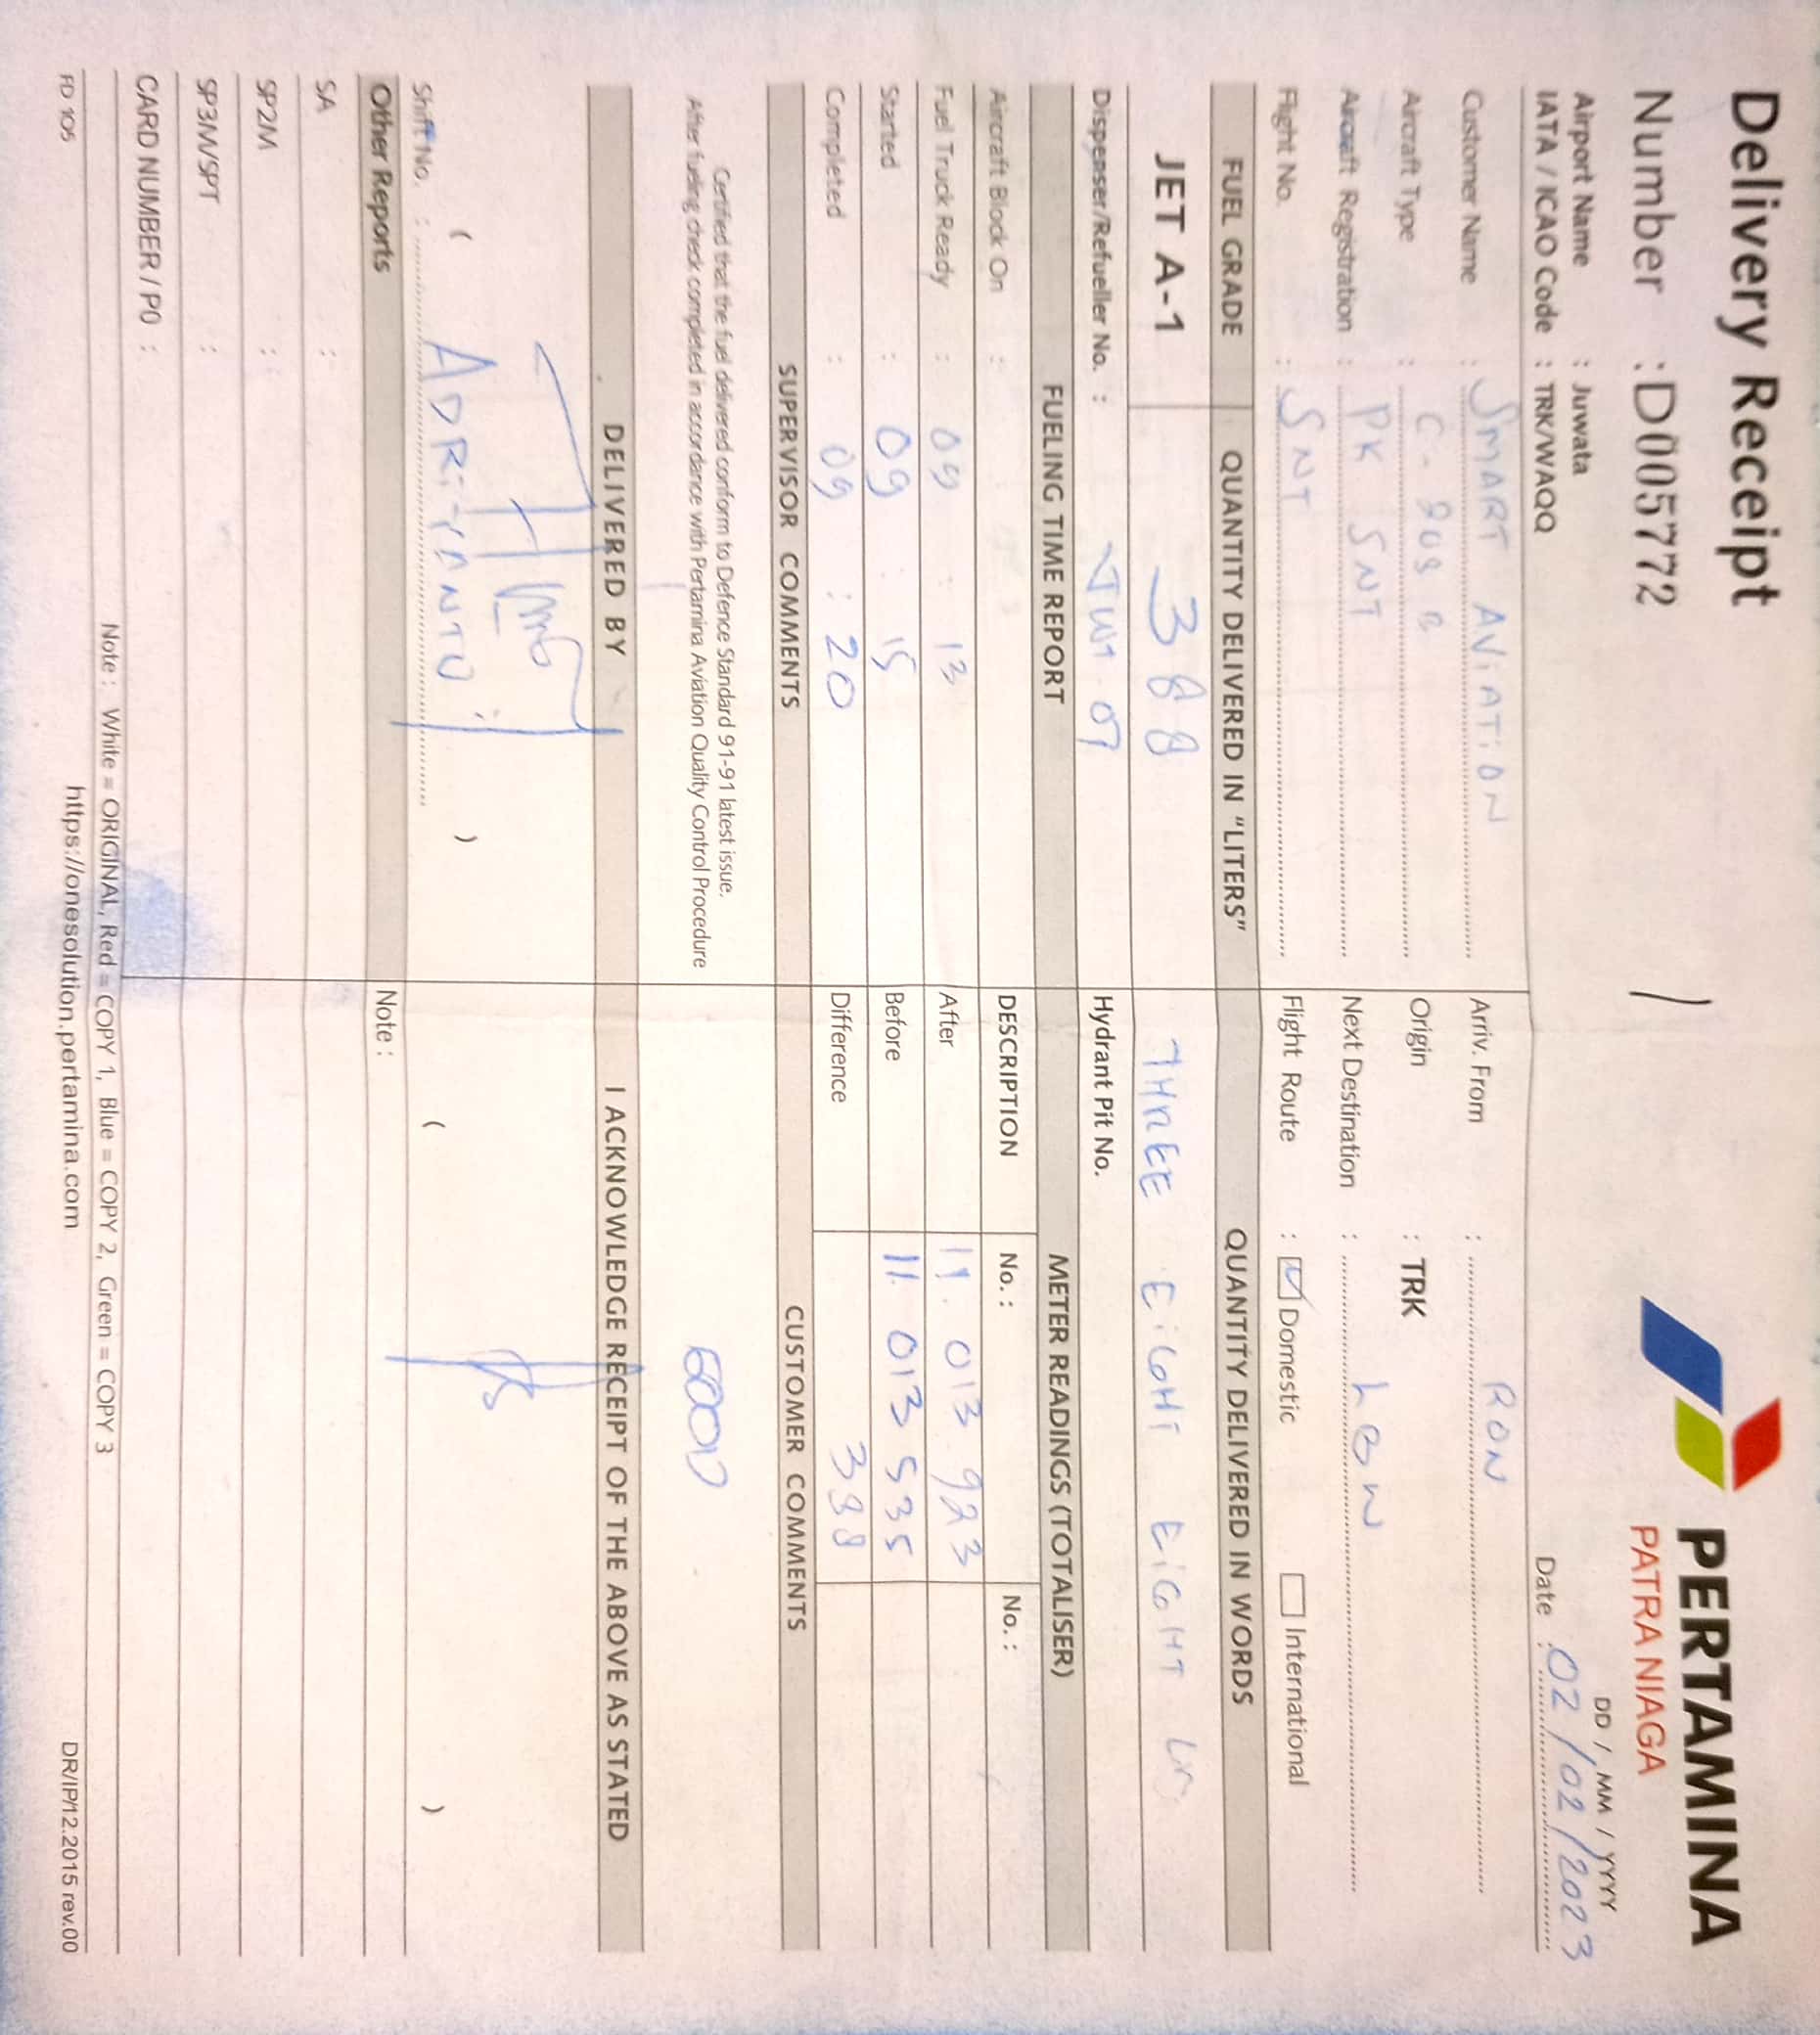 Delivery Receipt
PERTAMINA
PATRA NIAGA
Number : D005772
DD / MM / YYYY
Airport Name : Juwata
IATA / ICAO Code : TRK/WAQQ
Date : 02/02/2023
Customer Name : SMART AViATiON
Arriv. From : RON
Aircraft Type : C. 208 B
Origin : TRK
Aircraft Registration : PK SNT
Next Destination : LBW
Flight No. : SNT
Flight Route : Domestic International
FUEL GRADE QUANTITY DELIVERED IN "LITERS" QUANTITY DELIVERED IN WORDS
JET A-1 388 THREE EiGHT EiGHT
Dispenser/Refueller No. : JWT 07 Hydrant Pit No.
FUELING TIME REPORT METER READINGS (TOTALISER)
Aircraft Block On : DESCRIPTION No. : No. :
Fuel Truck Ready : 09 : 13 After 11. 013 923
Started : 09 : 15 Before 11. 013 535
Completed : 09 : 20 Difference 388
SUPERVISOR COMMENTS CUSTOMER COMMENTS
Certified that the fuel delivered conform to Defence Standard 91-91 latest issue.
After fueling check completed in accordance with Pertamina Aviation Quality Control Procedure
GOOD
DELIVERED BY I ACKNOWLEDGE RECEIPT OF THE ABOVE AS STATED
( ADRiYANTO ) ( )
Shift No. :
Other Reports Note :
SA :
SP2M :
SP3M/SPT :
CARD NUMBER / PO :
Note : White = ORIGINAL, Red = COPY 1, Blue = COPY 2, Green = COPY 3
FD 105 https://onesolution.pertamina.com DR/IP/12.2015 rev.00